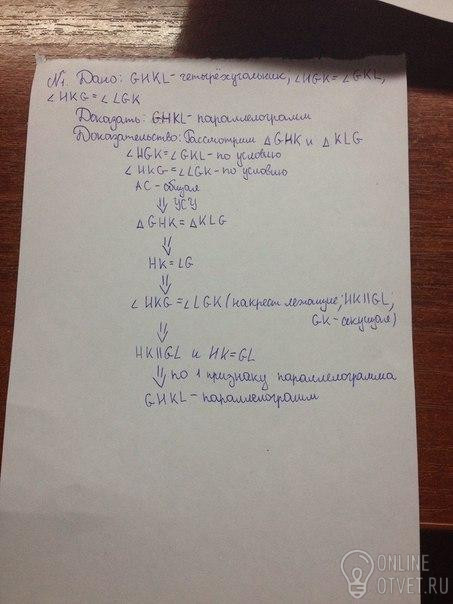 №1. Дано: GHKL-четырёхугольник, ∠HGK=∠GKL,
∠HKG=∠LGK
Доказать: GHKL-параллелограмм
Доказательство: Рассмотрим △GHK и △KLG
∠HGK=∠GKL-по условию
∠HKG=∠LGK-по условию
AC-общая
⇓ УСУ
△GHK=△KLG
⇓
HK=LG
⇓
∠HKG=∠LGK (накрест лежащие, HK||GL,
GK-секущая)
⇓
HK||GL и HK=GL
⇓ по 1 признаку параллелограмма
GHKL-параллелограмм
ONLINE
OTVET.RU